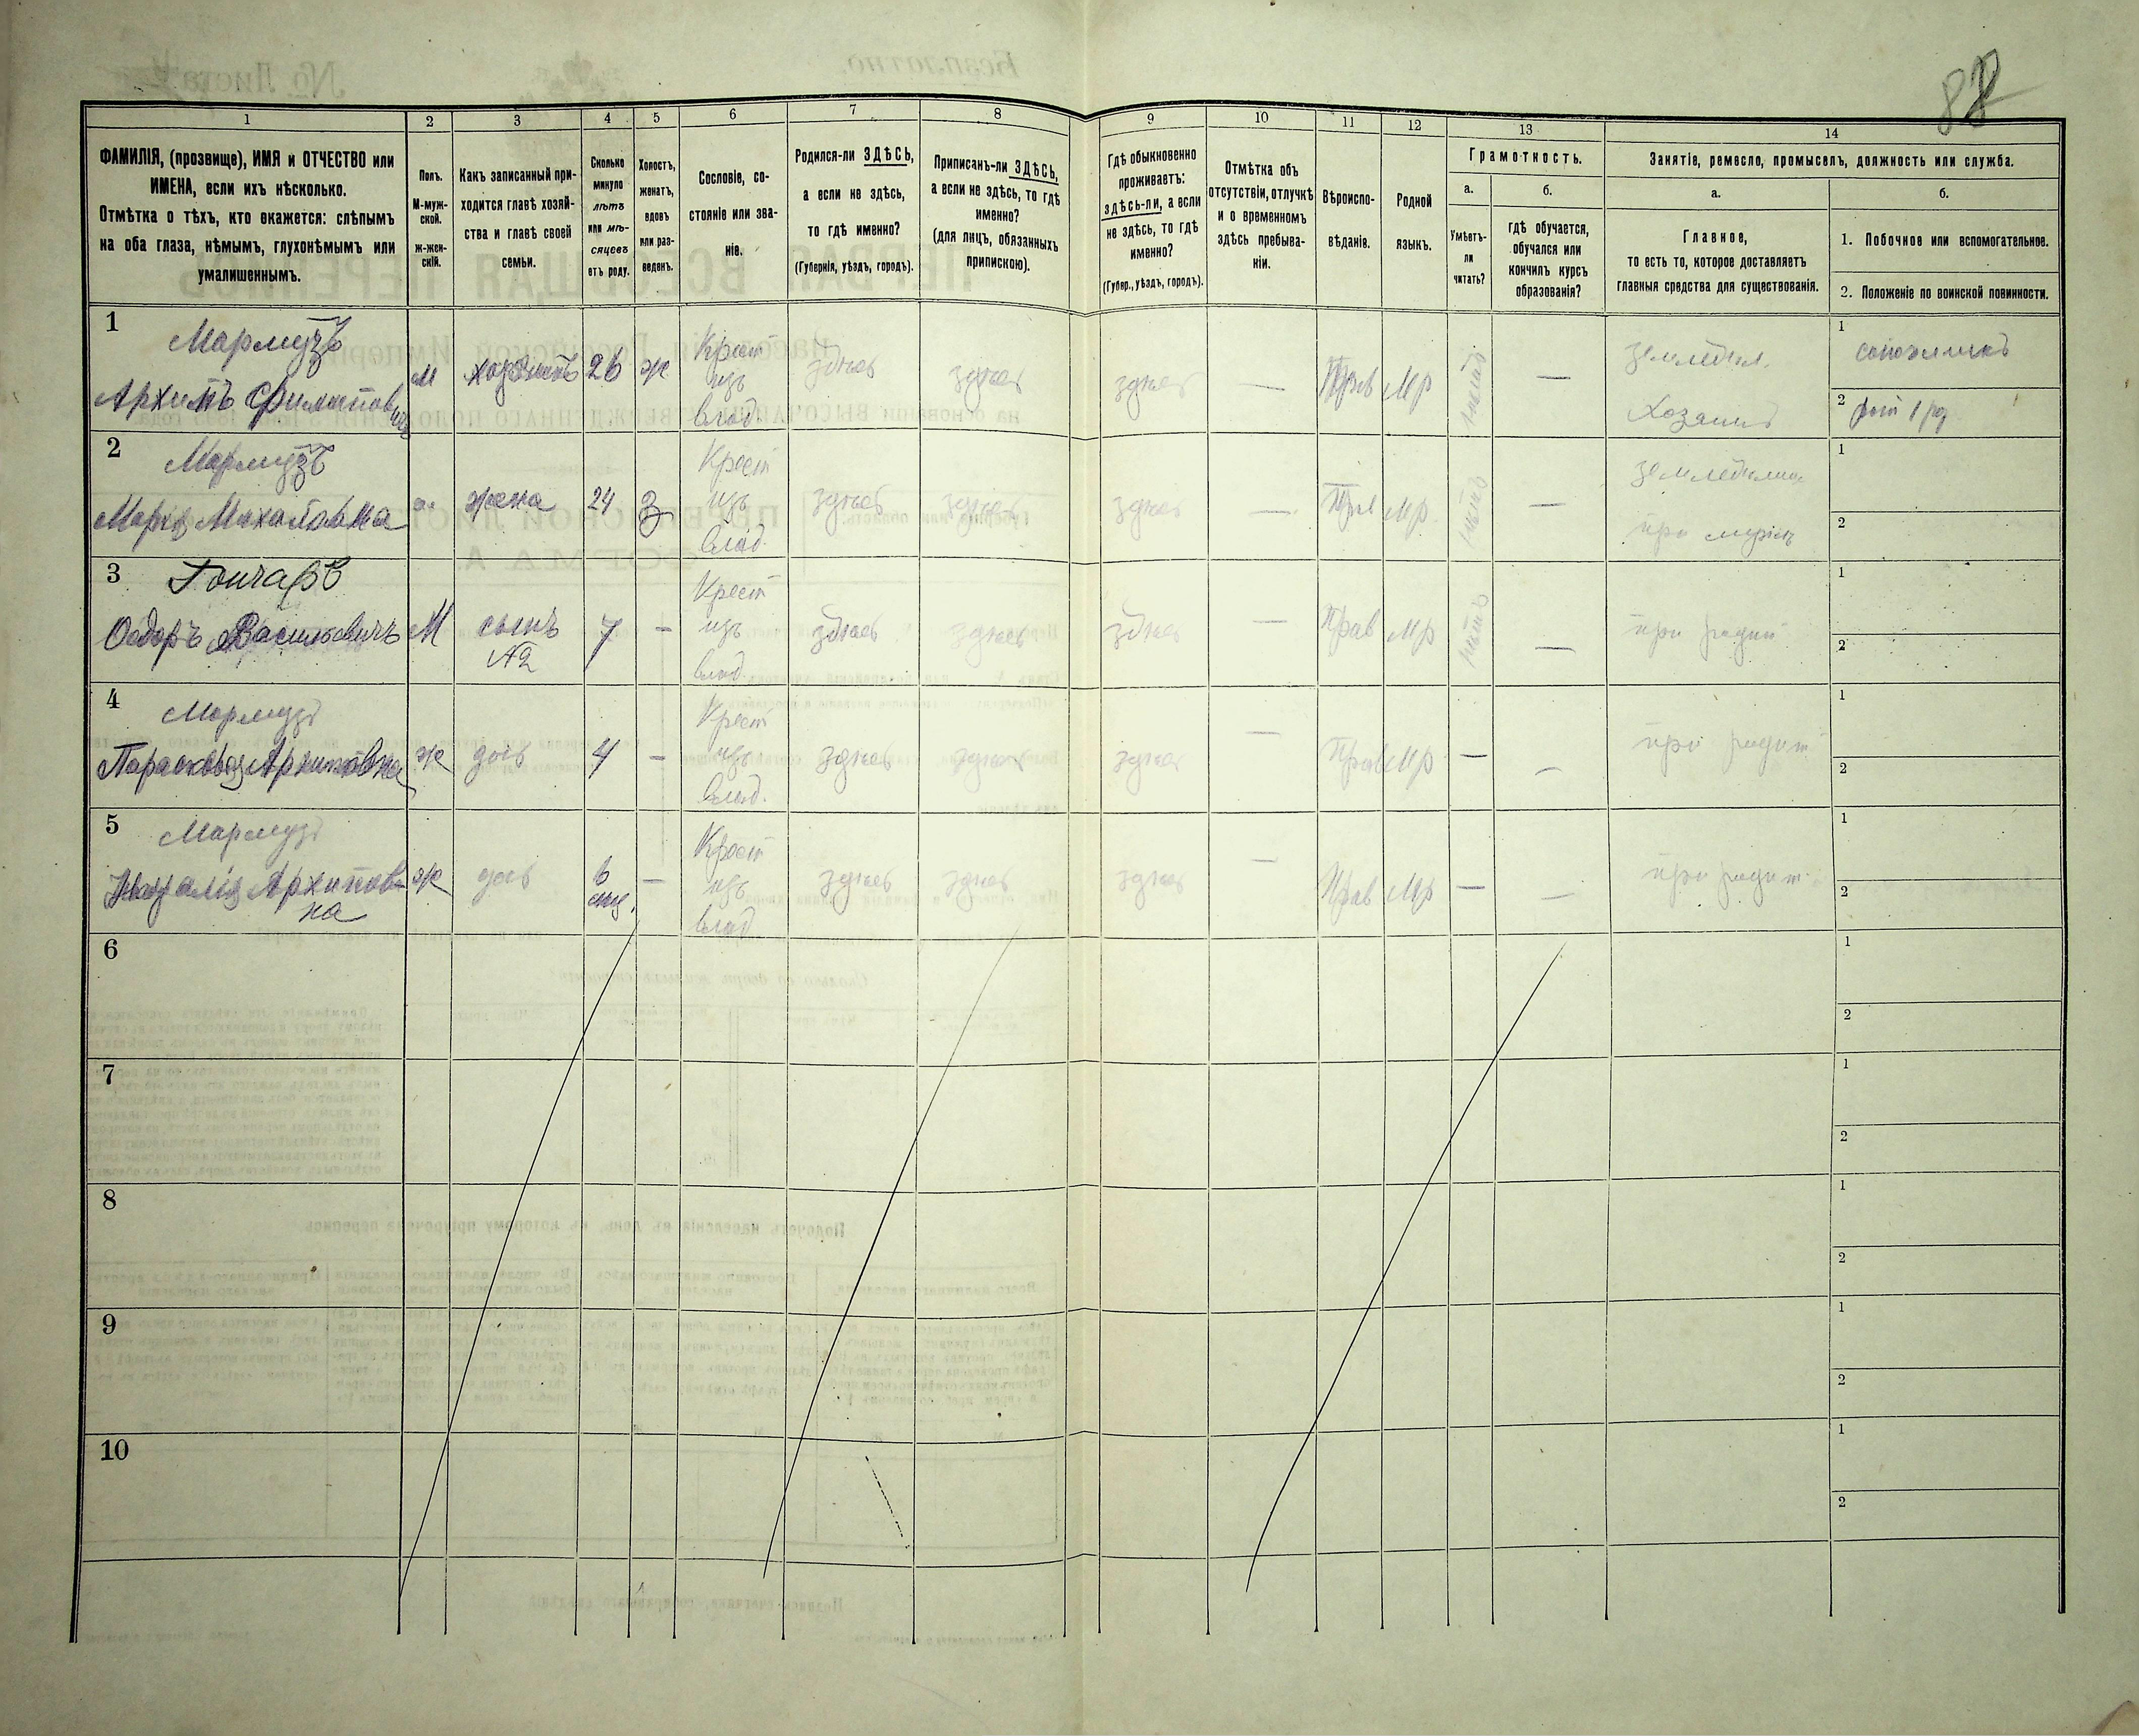 88
1 2 3 4 5 6 7 8 9 10 11 12 13 14
ФАМИЛІЯ, (прозвище), ИМЯ и ОТЧЕСТВО или
ИМЕНА, если ихъ нѣсколько.
Отмѣтка о тѣхъ, кто окажется: слѣпымъ
на оба глаза, нѣмымъ, глухонѣмымъ или
умалишеннымъ.
Полъ.
М-муж-
ской.
ж-жен-
скій.
Какъ записанный при-
ходится главѣ хозяй-
ства и главѣ своей
семьи.
Сколько
минуло
лѣтъ
или мѣ-
сяцевъ
отъ роду.
Холостъ,
женатъ,
вдовъ
или раз-
веденъ.
Сословіе, со-
стояніе или зва-
ніе.
Родился-ли ЗДѢСЬ,
а если не здѣсь,
то гдѣ именно?
(Губернія, уѣздъ, городъ).
Приписанъ-ли ЗДѢСЬ,
а если не здѣсь, то гдѣ
именно?
(для лицъ, обязанныхъ
припискою).
Гдѣ обыкновенно
проживаетъ:
здѣсь-ли, а если
не здѣсь, то гдѣ
именно?
(Губер., уѣздъ, городъ).
Отмѣтка объ
отсутствіи, отлучкѣ
и о временномъ
здѣсь пребыва-
ніи.
Вѣроиспо-
вѣданіе.
Родной
языкъ.
Грамотность.
а.
Умѣетъ-
ли
читать?
б.
гдѣ обучается,
обучался или
кончилъ курсъ
образованія?
Занятіе, ремесло, промыселъ, должность или служба.
а.
Главное,
то есть то, которое доставляетъ
главныя средства для существованія.
б.
1. Побочное или вспомогательное.
2. Положеніе по воинской повинности.
1
Мармузъ
Архипъ Филиповичъ
М хозяинъ 26 ж
Крест
изъ
влад.
здѣсь здѣсь здѣсь — Прав Мр нѣтъ —
земледѣл.
Хозяинъ
1
2
2
Мармузъ
Марія Михайловна
ж жена 24 з
Крест
изъ
влад.
здѣсь здѣсь здѣсь — Прав Мр нѣтъ —
1
2
3
Гончаръ
Ѳедоръ Васильевичъ
М сынъ 7 —
№2
Крест
изъ
влад.
здѣсь здѣсь здѣсь — Прав Мр нѣтъ —
при родит
1
2
4
Мармузъ
Парасковья Архиповна
ж дочь 4 —
Крест
изъ
влад.
здѣсь здѣсь здѣсь — Прав Мр — —
при родит
1
2
5
Мармузъ
Наталія Архипов
на
ж дочь 6 —
мѣс.
Крест
изъ
влад
здѣсь здѣсь здѣсь — Прав Мр — —
при родит
1
2
6
1
2
7
1
2
8
1
2
9
1
2
10
1
2